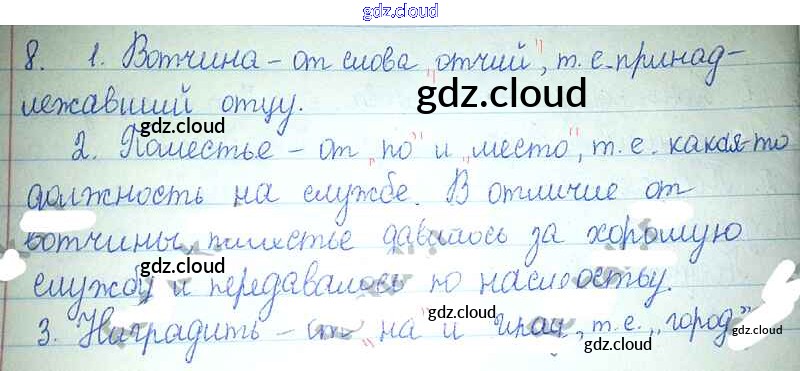 gdz.cloud
8. 1. Вотчина – от слова „отчий", т. е. принад-
лежавший отцу.
gdz.cloud
gdz.cloud
2. Поместье – от „по" и „место", т. е. какая-то
gdz.cloud
должность на службе. В отличие от
вотчины, поместье давалось за хорошую
gdz.cloud
службу и передавалось по наследству.
gdz.cloud
3. Наградить – от „на" и град, т. е. „город"
gdz.cloud
gdz.cloud
gdz.cloud